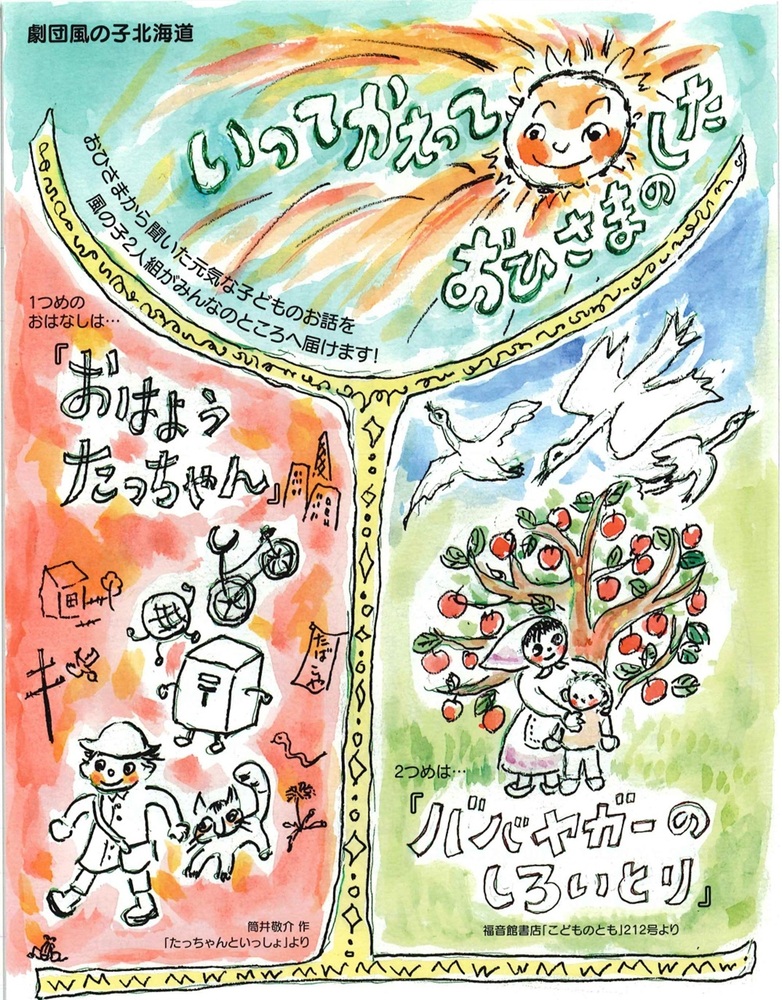 劇団風の子北海道
いってかえって
した
おひさまの
おひさまから聞いた元気な子どものお話を
風の子2人組がみんなのところへ届けます!
1つめの
おはなしは…
『おはよう
たっちゃん』
たばこや
筒井敬介 作
「たっちゃんといっしょ」より
2つめは…
『ババヤガーの
しろいとり』
福音館書店「こどものとも」212号より